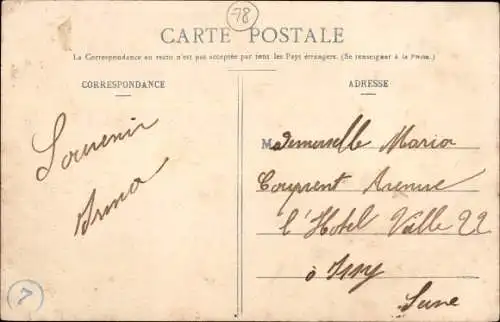 78
CARTE POSTALE
La Correspondance au recto n'est pas acceptée par tous les Pays étrangers. (Se renseigner à la Poste.)
CORRESPONDANCE
ADRESSE
Souvenir
Mademoiselle Maria
Avenue
l'Hotel Ville 22
à Issy
Seine
7